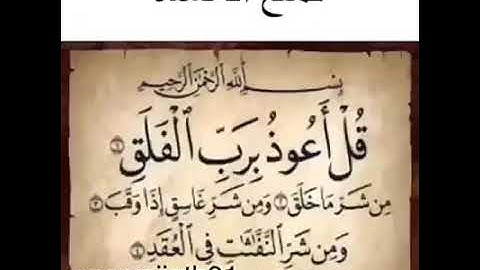 بِسْمِ ٱللَّهِ ٱلرَّحْمَٰنِ ٱلرَّحِيمِ
قُلْ أَعُوذُ بِرَبِّ ٱلْفَلَقِ ١
مِن شَرِّ مَا خَلَقَ ٢ وَمِن شَرِّ غَاسِقٍ إِذَا وَقَبَ ٣
وَمِن شَرِّ ٱلنَّفَّٰثَٰتِ فِى ٱلْعُقَدِ ٤